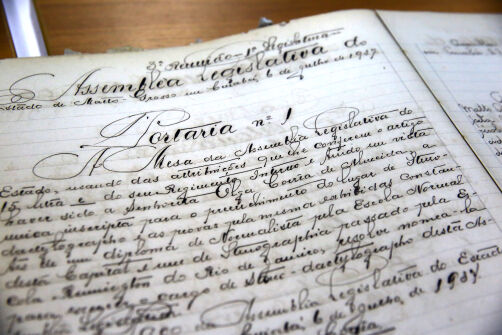 3ª Reunião - 1ª Legislatura
Assembléa Legislativa do
Estado de Matto-Grosso em Cuiabá, 6 de julho de 1937
Portaria nº 1
A Mesa da Assembléa Legislativa do
Estado, usando das attribuições que lhe confere o artigo
15, letra e do seu Regimento Interno e tendo em vista
haver sido a Senhorita Olga Corrêa de Almeida a
unica inscripta para o provimento do lugar de Steno-
dactylographo e as provas pela mesma
tas de um diploma de Normalista pela Escola Normal
desta Capital e um de Stenographia passado pela Es-
cola Remington do Rio de Janeiro, resolve nomeal-a
para o cargo de Steno-dactylographo desta As-
Legislativa
da Assembléa Legislativa do Estado
6 de julho de 1937